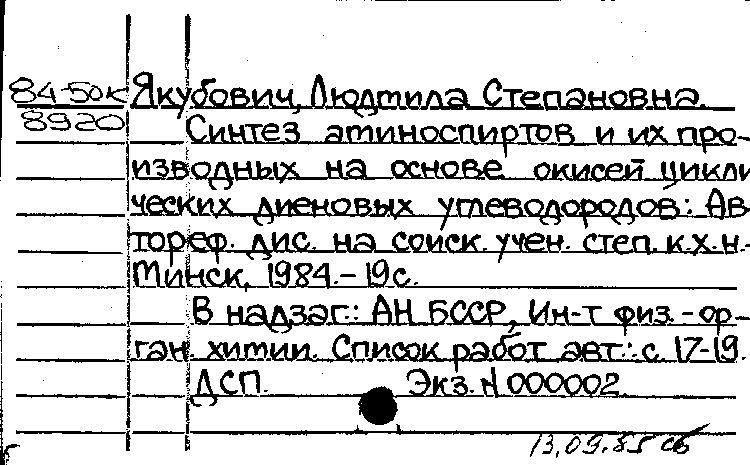 84-50к Якубович, Людмила Степановна.
8920 Синтез аминоспиртов и их про-
изводных на основе окисей цикли
ческих диеновых углеводородов: Ав
тореф. дис. на соиск. учен. степ. к.х.н.-
Минск, 1984.-19с.
В надзаг.: АН БССР, Ин-т физ.-ор-
ган. химии. Список работ авт.: с. 17-19.
ДСП. Экз. N 000002
13.09.85